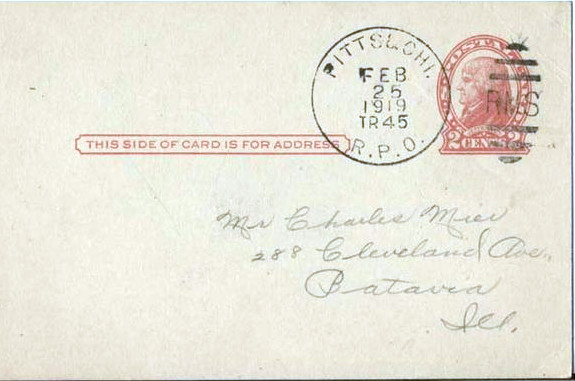 PITTS & CHI.
FEB
25
1919
TR 45
R.P.O.
U.S. POSTAGE
2 CENTS 2
RMS
THIS SIDE OF CARD IS FOR ADDRESS
Mr Charles Mier
288 Cleveland Ave.,
Batavia
Ill.